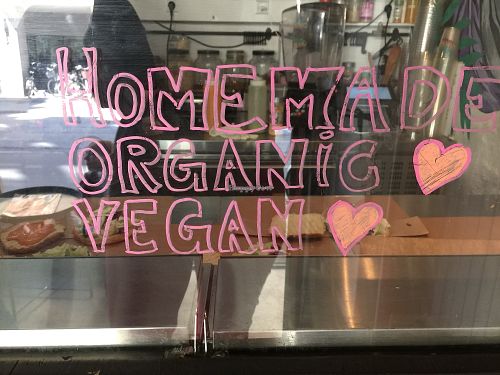 HOMEMADE
ORGANIC
VEGAN